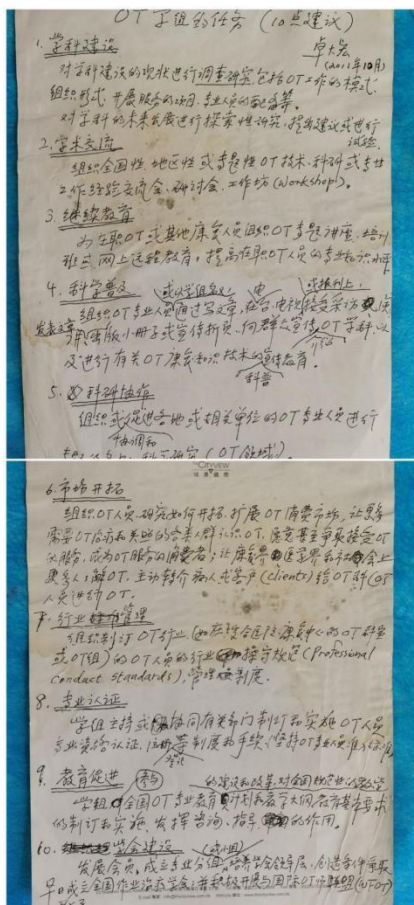 OT学组的任务(10点建议)
卓大宏
(2011年10月)
1. 学科建设
对学科建设的现状进行调查研究包括OT工作的模式、
组织形式、开展服务的项目、专业人员的配备等。
对学科的未来发展进行探索性研究,提出建议或进行
试验。
2. 学术交流
组织全国性、地区性或专题性OT技术、科研或专业
工作经验交流会、研讨会、工作坊(Workshop)。
3. 继续教育
为在职OT或其他康复人员组织OT专题讲座、培训
班或网上远程教育,提高在职OT人员的专业知识水平
4. 科学普及
组织OT专业人员通过写文章,在电台、电视或报刊上接受采访
发表文章 出版小册子或宣传折页,向群众宣传介绍OT学科,以
及进行有关OT康复知识技术的科普宣传教育。
5. 科研协作
组织或促进协调各地或相关单位的OT专业人员进行
科学研究(OT领域)。
Cityview
6. 市场开拓
组织OT人员研究如何开拓、扩展OT消费市场,让更多
需要OT治疗和失能的各类人群认识OT、愿意甚至争取接受OT
服务,成为OT服务的消费者;让康复界、医学界和社会上
更多人了解OT,主动转介病人或客户(clients)给OT师(OT
人员进行OT。
7. 行业管理
组织制订OT行业(如在综合医院康复中心的OT科室
或OT组)的OT人员的行业操守规范(Professional
Conduct Standards),管理制度。
8. 专业认证
学组主持或协同有关部门制订和实施OT人员
专业资格认证、注册登记等制度和手续,坚持OT专业人员准入标准
9. 教育促进
学组参与全国OT专业教育计划和教学大纲、教育基本要求
的建议和改革,对全国规范性
的制订和实施,发挥咨询、指导的作用。
10. 学会建设
发展会员,成立专业分组(或小组),培养学会领导层,创造条件争取
早日成立全国作业治疗学会;并积极开展与国际OT联盟(WFOT)